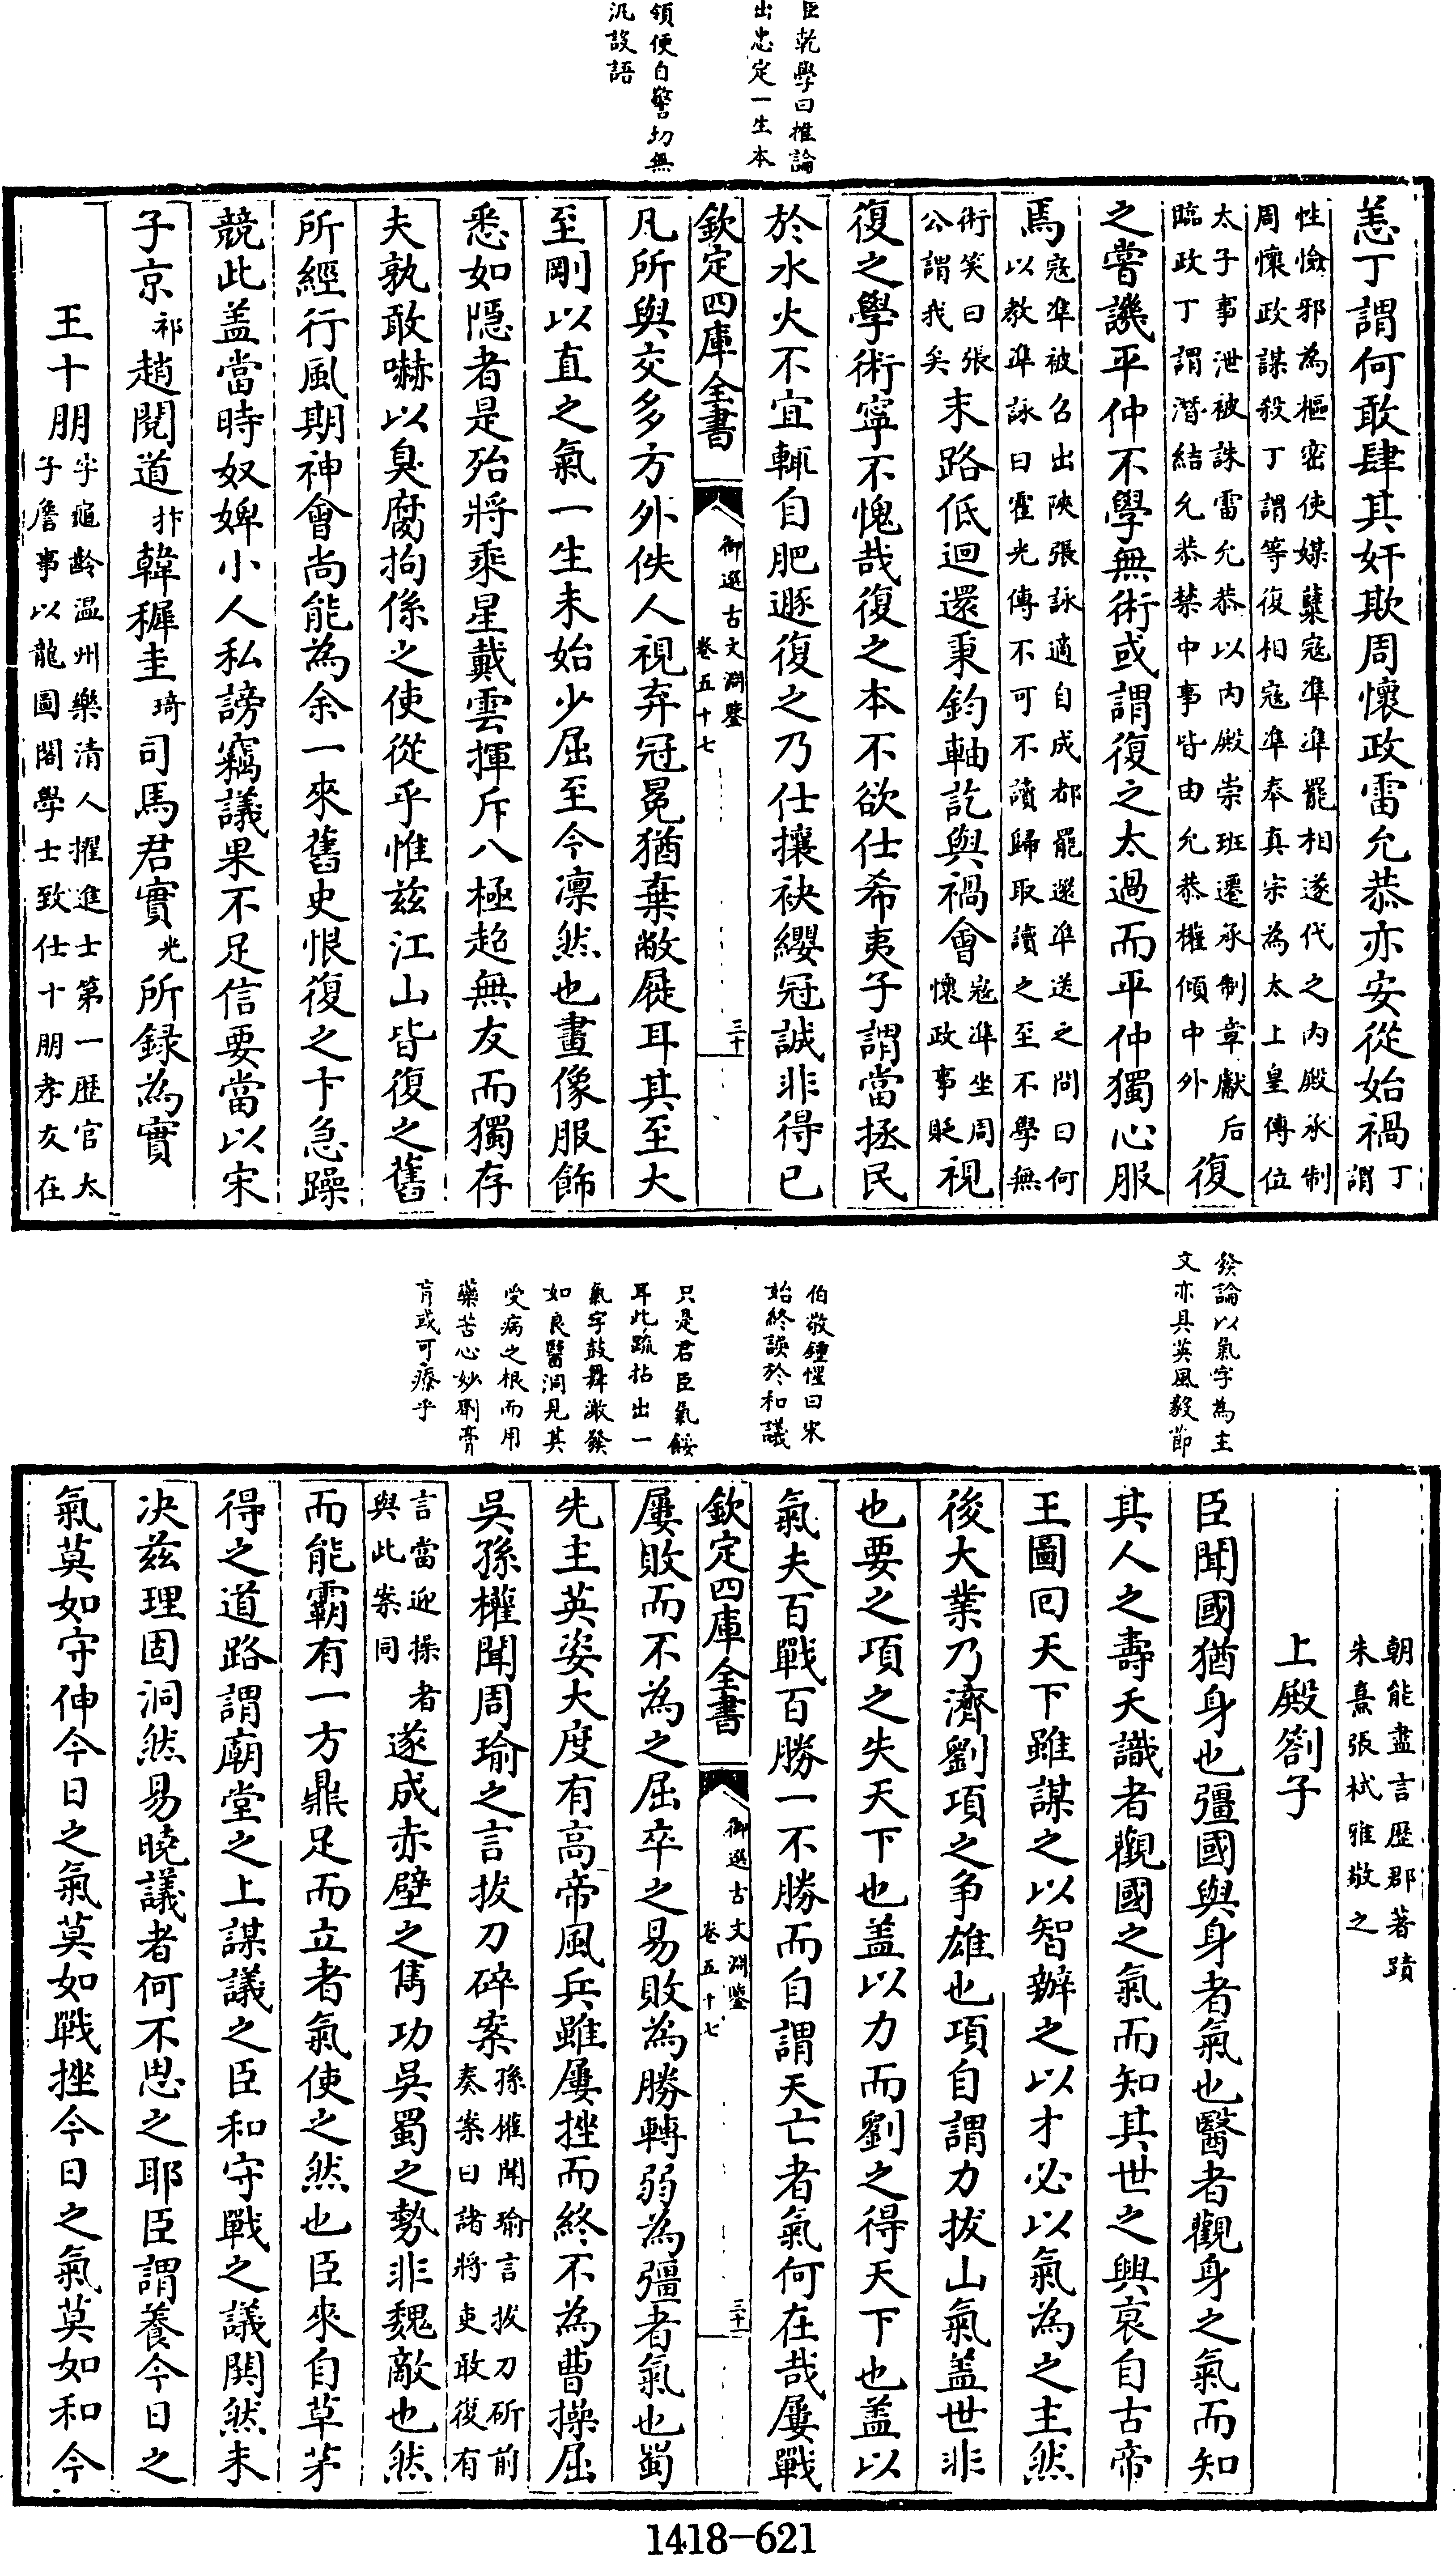 臣乾學曰推論
出忠定一生本
領便自警切無
汎設語
恙丁謂何敢肆其奸欺周懷政雷允恭亦安從始禍丁謂
性憸邪為樞密使媒糵寇準準罷相遂代之内殿承制
周懷政謀殺丁謂等復相寇準奉真宗為太上皇傳位
太子事泄被誅雷允恭以内殿崇班遷承制章獻后
臨政丁謂潛結允恭禁中事皆由允恭權傾中外
復
之嘗譏平仲不學無術或謂復之太過而平仲獨心服
焉寇準被召出陜張詠適自成都罷還準送之問曰何
以教準詠曰霍光傳不可不讀歸取讀之至不學無
術笑曰張
公謂我矣
末路低迴還秉鈞軸訖與禍會寇準坐周
懷政事貶
視
復之學術寧不愧哉復之本不欲仕希夷子謂當拯民
於水火不宜輒自肥遯復之乃仕攘袂纓冠誠非得已
欽定四庫全書
御選古文淵鑒
卷五十七
三十
凡所與交多方外佚人視弃冠冕猶棄敝屣耳其至大
至剛以直之氣一生未始少屈至今凛然也畫像服飾
悉如隠者是殆將乘星戴雲揮斥八極超無友而獨存
夫孰敢嚇以臭腐拘係之使從乎惟兹江山皆復之舊
所經行風期神會尚能為余一來舊史恨復之卞急躁
競此盖當時奴婢小人私謗竊議果不足信要當以宋
子京祁趙閱道抃韓穉圭琦司馬君實光所録為實
王十朋字龜齡温州樂清人擢進士第一歴官太
子詹事以龍圖閣學士致仕十朋孝友在
發論以氣字為主
文亦具英風毅節
伯敬鍾惺曰宋
始終誤於和議
只是君臣氣餒
耳此疏拈出一
氣字鼓舞激發
如良醫洞見其
受病之根而用
藥苦心妙劑膏
肓或可療乎
朝能盡言歴郡著蹟
朱熹張栻雅敬之
上殿劄子
臣聞國猶身也彊國與身者氣也醫者觀身之氣而知
其人之壽夭識者觀國之氣而知其世之興衰自古帝
王圖囘天下雖謀之以智辦之以才必以氣為之主然
後大業乃濟劉項之争雄也項自謂力拔山氣盖世非
也要之項之失天下也盖以力而劉之得天下也盖以
氣夫百戰百勝一不勝而自謂天亡者氣何在哉屢戰
欽定四庫全書
御選古文淵鑒
卷五十七
三十一
屢敗而不為之屈卒之易敗為勝轉弱為彊者氣也蜀
先主英姿大度有高帝風兵雖屢挫而終不為曹操屈
吳孫權聞周瑜之言拔刀碎案孫權聞瑜言拔刀斫前
奏案曰諸將吏敢復有
言當迎操者
與此案同
遂成赤壁之雋功吳蜀之勢非魏敵也然
而能霸有一方鼎足而立者氣使之然也臣來自草茅
得之道路謂廟堂之上謀議之臣和守戰之議閧然未
决兹理固洞然易曉議者何不思之耶臣謂養今日之
氣莫如守伸今日之氣莫如戰挫今日之氣莫如和今
1418-621